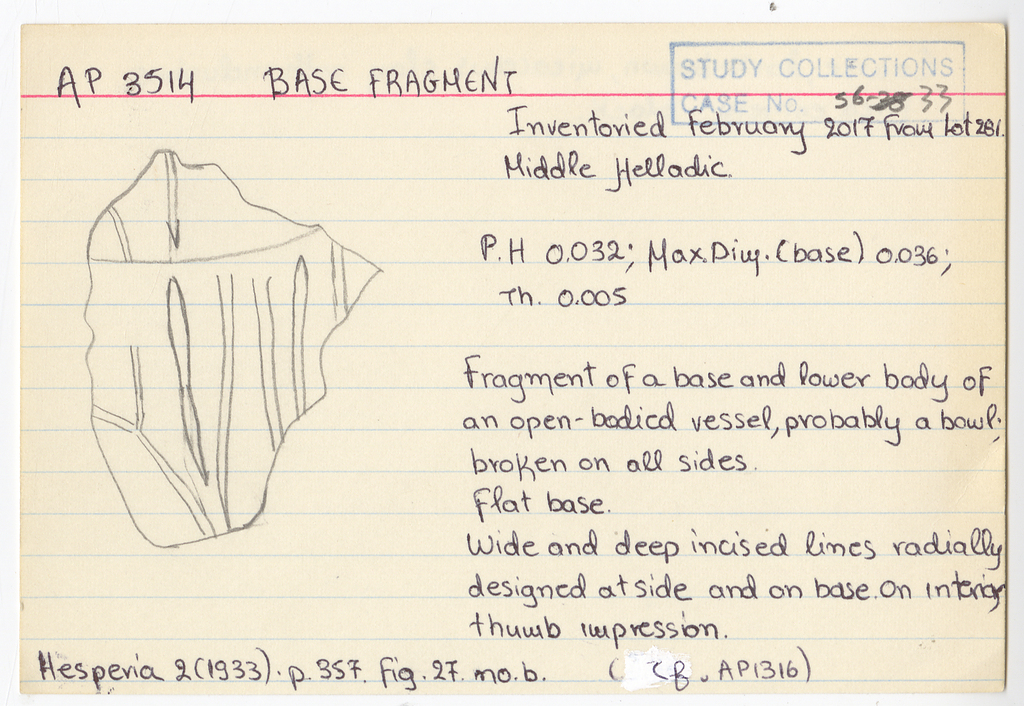 AP 3514 BASE FRAGMENT
STUDY COLLECTIONS
CASE No. 56-33
Inventoried February 2017 from Lot 281.
Middle Helladic.
P.H 0.032; Max.Dim. (base) 0.036;
Th. 0.005
Fragment of a base and lower body of
an open-bodied vessel, probably a bowl;
broken on all sides.
Flat base.
Wide and deep incised lines radially
designed at side and on base. On interior
thumb impression.
Hesperia 2 (1933). p. 357. fig. 27. no. b. (cf. AP1316)